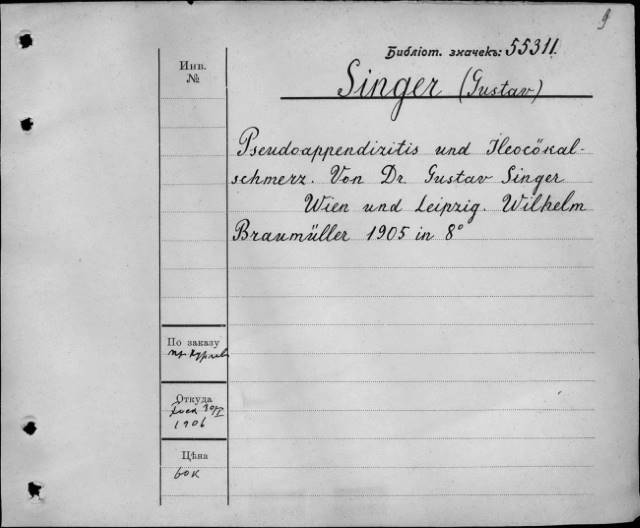 9
Библіот. значекъ: 55311.
Инв.
№
Singer (Gustav)
Pseudoappendizitis und Ileocökal-
schmerz. Von Dr Gustav Singer
Wien und Leipzig. Wilhelm
Braumüller 1905 in 8°
По заказу
Откуда
1906
Цѣна
60 к